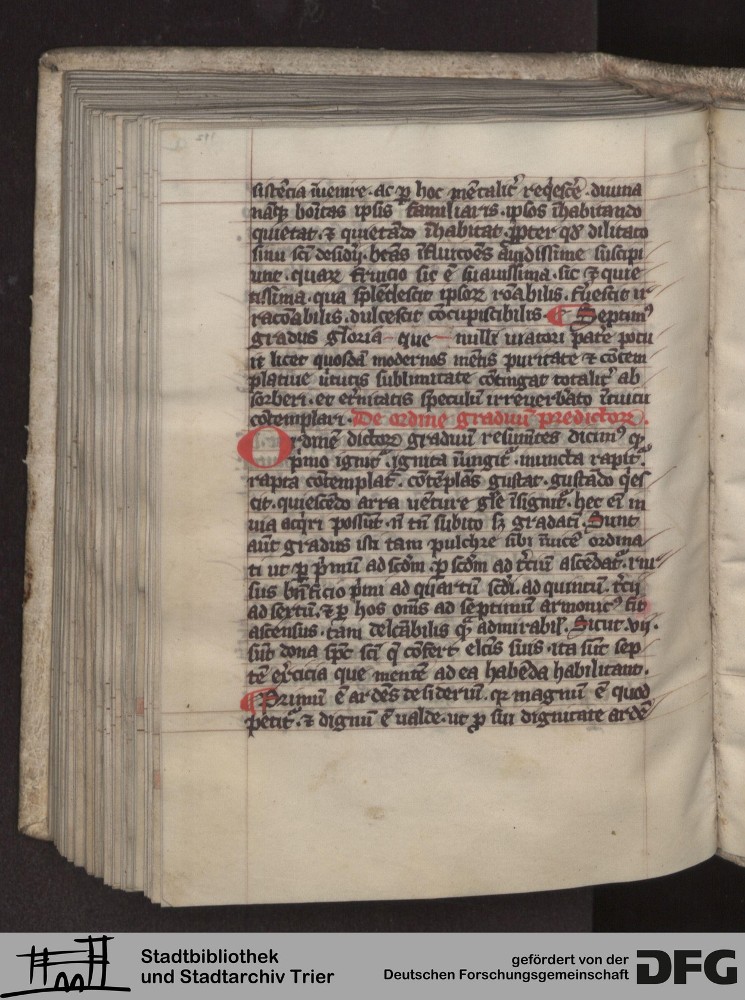 sistēcia īuenire · ac ꝑ hoc mētalit᷒ reqͥescē̓ · diuina
naqꝫ bōitas ipsis familiaris · ipsos īhabitando
quietat · ⁊ quietādo īhabitat · ꝓpter qd̓ dilatato
sinu sci desidij · beās īfluicōēs auidissime suscipi
unt · quaꝝ fruicio sic ē suauissima · sic ⁊ quie
tissima · qua splēdescit ipsoꝝ roābilis · feruescit ir
racoābilis · dulcescit cōcupiscibilis · ¶ Septimꝰ
gradus gloria que nulli uiatori patē̓ potu
it licet quosdā modernos mētis puritate ⁊ cōtem
platiue uirtutis sublimitate cōtingat totalit᷒ ab
sorberi · et et̓nitatis speculū irreuerbato ītuitu
cōtemplari · De ordine graduū predictoꝝ .
Ordinē dictoꝝ graduū resumētes dicimꝰ qͥ
pͥmo ignit᷒ · ignita ūngit᷒ · iuncta rapit᷒ ·
rapta cōtemplat᷒ · cōtēplās gustat · gustādo qͥes
cit · quiescēdo arra uēture gl̓e īsignit᷒ · hec ei̓ in
uia acqͥri possūt · n̄ tn̄ subito sꝫ gradati · Sunt
aūt gradus isti tam pulchre sibi īuicē ordina
ti ut ꝑ pͥmū ad scd̓m · ꝑ scd̓m ad tͨciū ascēdat᷒ · rur
sus bn̄ficio pͥmi ad quartū scd̓i · ad quintū · tͨcij
ad sextū · ⁊ ꝑ hos oīs ad septimū armonicꝰ fit
ascensus · tam delcābilis qͣ admirabil̓ · Sicut · vij ·
sūt dona spc̄ sci̓ q̄ cōfert elcīs suis · ita sūt sep
tē ex̓cicia que mentē ad ea habēda habilitant ·
¶ Primū ē ardēs desideriū · qꝛ magnū ē quod
petit᷒ · ⁊ dignū ē ualde · ut ꝓ sui dignitate ardē
Stadtbibliothek
und Stadtarchiv Trier
gefördert von der
Deutschen Forschungsgemeinschaft
DFG